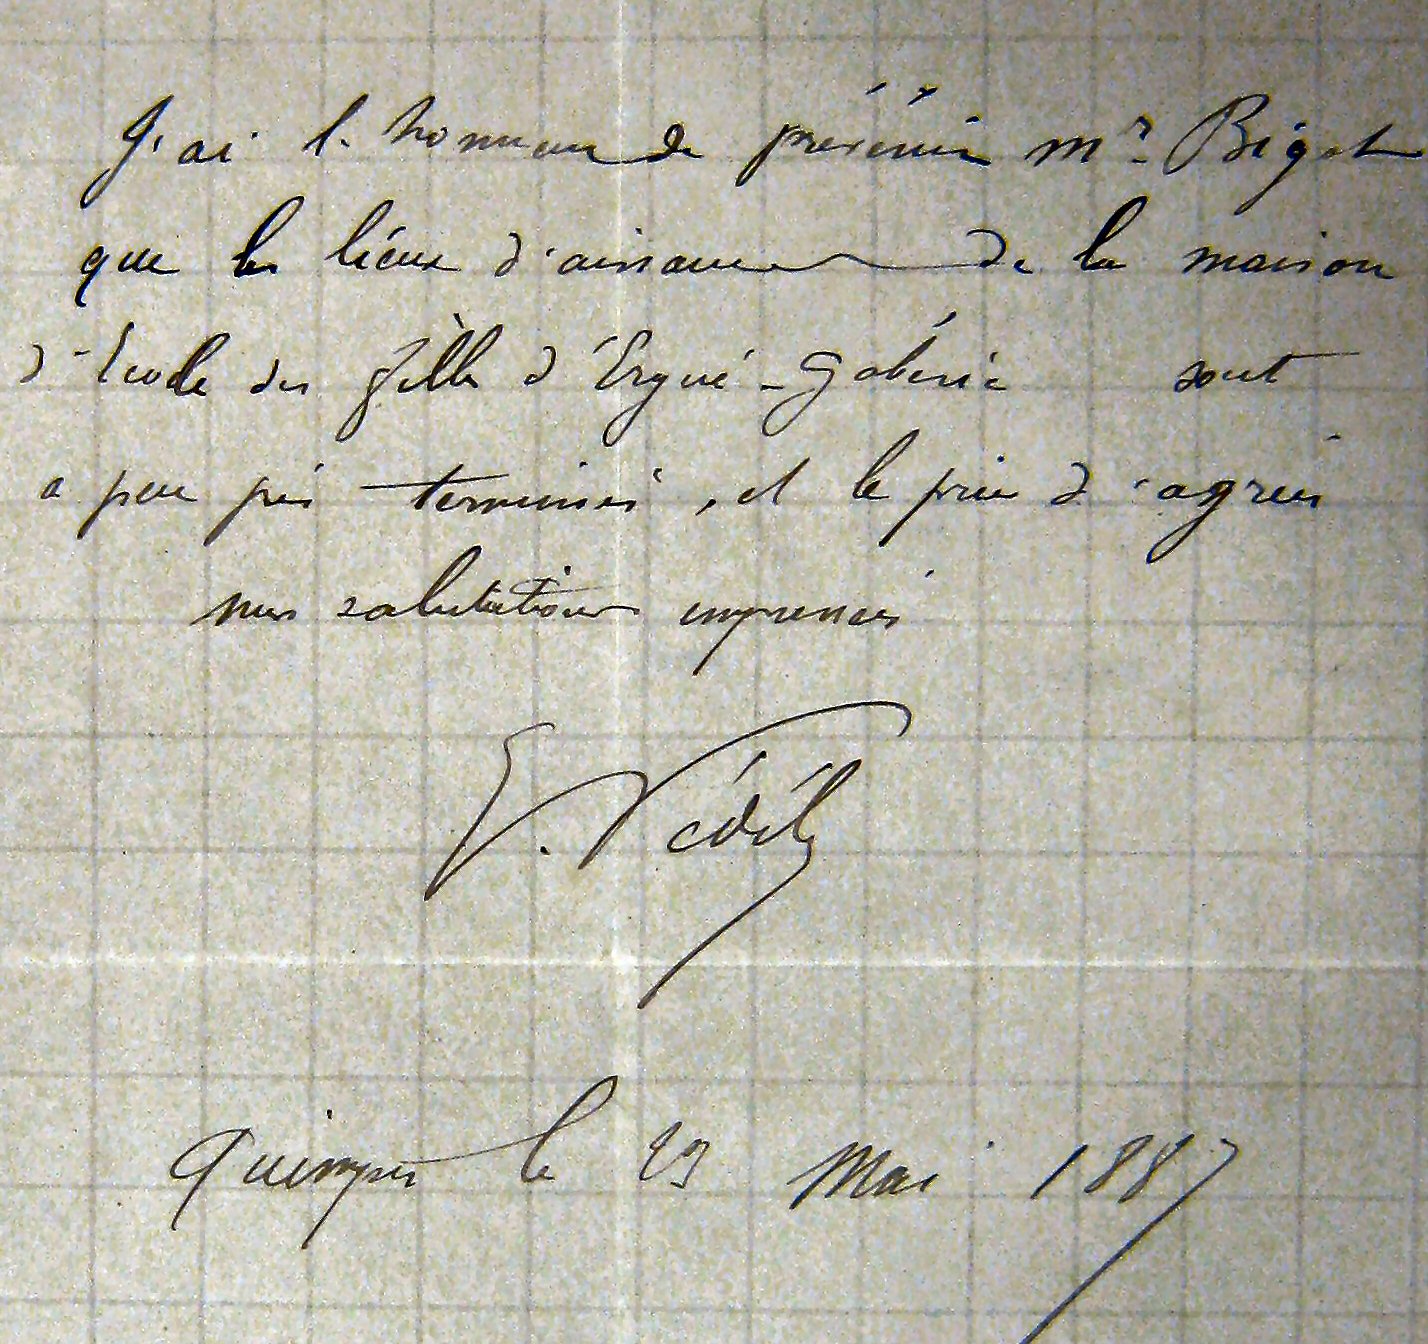 J'ai l'honneur de prévenir Mr. Bigot
que les lieux d'aisance de la maison
d'École des filles d'Ergué-Gabéric sont
a peu près terminés, et le prie d'agréer
mes salutations empressées
E. Védélis
Quimper le 23 Mai 1887